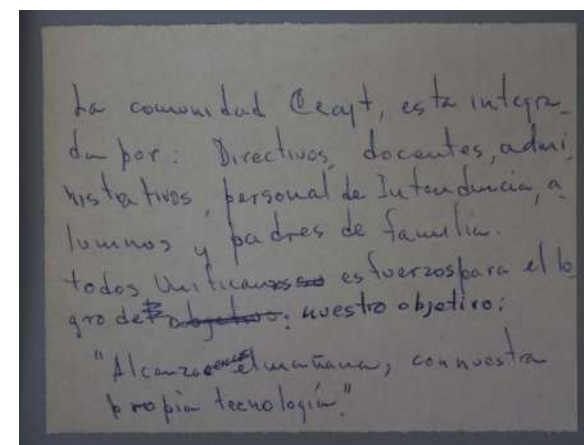 La comunidad Cecyt, esta integra_
da por: Directivos, docentes, admi,
nistrativos, personal de Intendencia, a
lumnos y padres de familia.
todos Unificamos esfuerzos para el lo_
gro de nuestro objetivo:
"Alcanzar el mañana, con nuestra
propia tecnología."